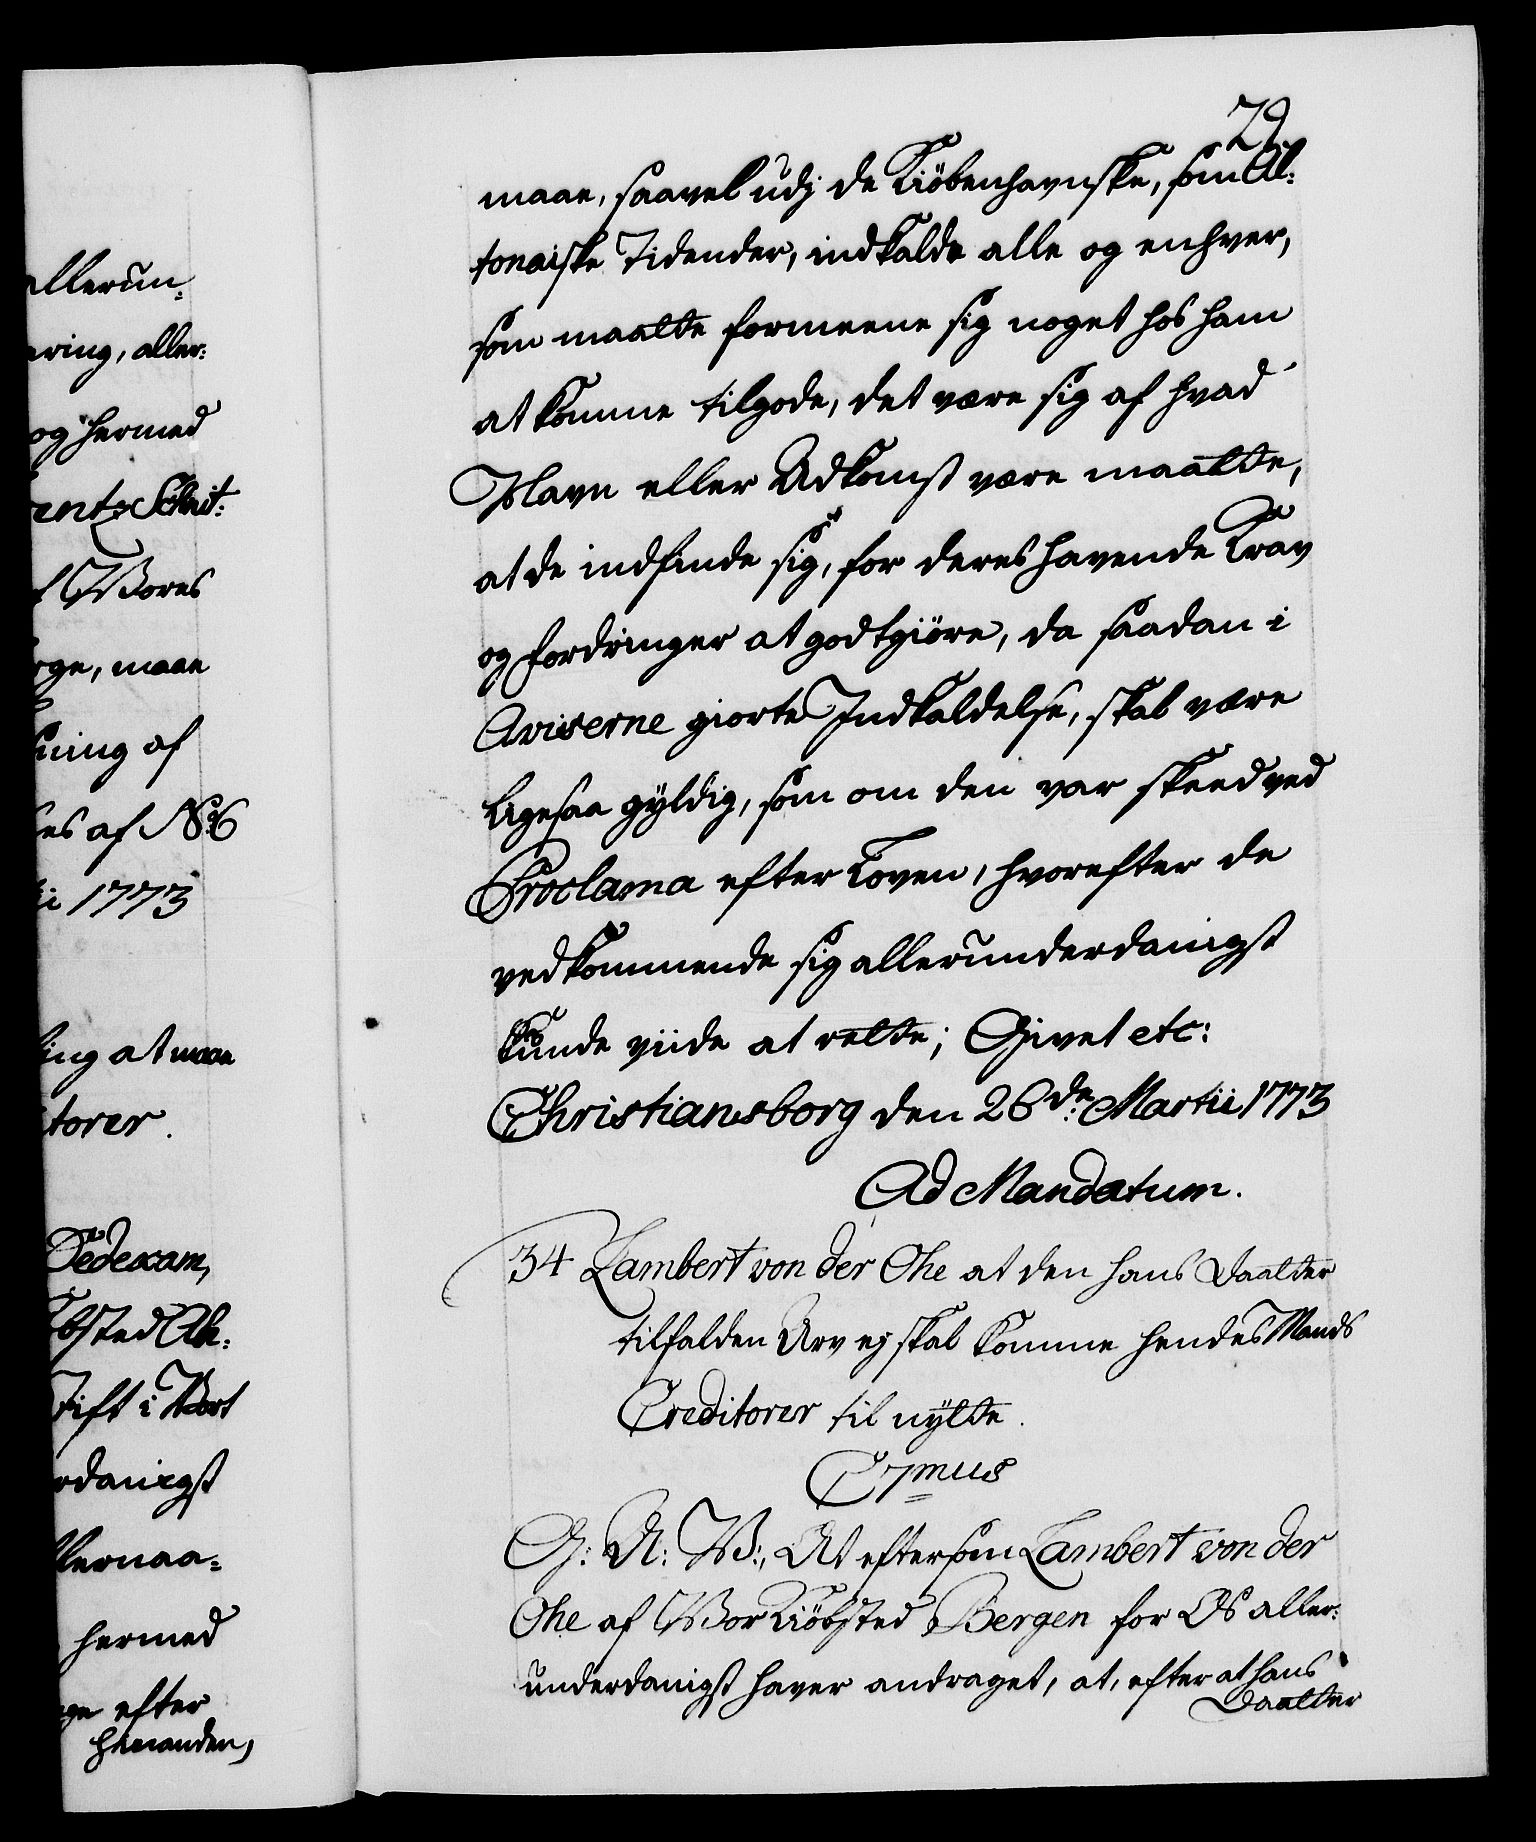 allerun-
ering, aller:
og hermed
rentz Schit:
Vores
rge, maae
ning af
es af No 6
1773
ing at maae
torer.
Tedexam,
bsted Ak:
Vort
rdanigst
llernaa-
hermed
efter
hinanden,
29.
maae, saavel udj de Kiöbenhavnske, som Al:
tonaiske Tidender, indkalde alle og enhver,
som maatte formeene sig noget hos ham
at komme tilgode, det være sig af hvad
Navn eller Adkomst være maatte,
at de indfinde sig, for deres havende Krav
og fordringer at godtgiöre, da saadan i
Aviserne giorte Indkaldelse, skal være
ligesaa gyldig, som om den var skeed ved
Proclama efter Loven, hvorefter de
vedkommende sig allerunderdanigst
kunde viide at rette; Givet etc:
Christiansborg den 26de: Martii 1773
Ad Mandatum.
34 Lambert von der Ohe at den hans Daatter
tilfalden Arv ej skal komme hendes Mands
Creditorer til nytte.
C 7mus
G: A: V:, At eftersom Lambert von der
Ohe af Vor Kiöbsted Bergen for Os aller:
underdanigst haver andraget, at, efter at hans
Daatter